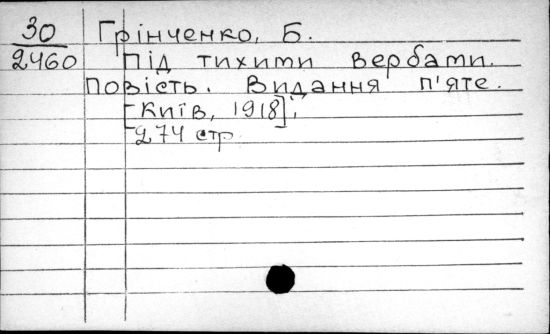 30 Грінченко, Б.
2460 Під тихими вербами.
Повість. Видання п'яте.
[Київ, 1918],
274 стр